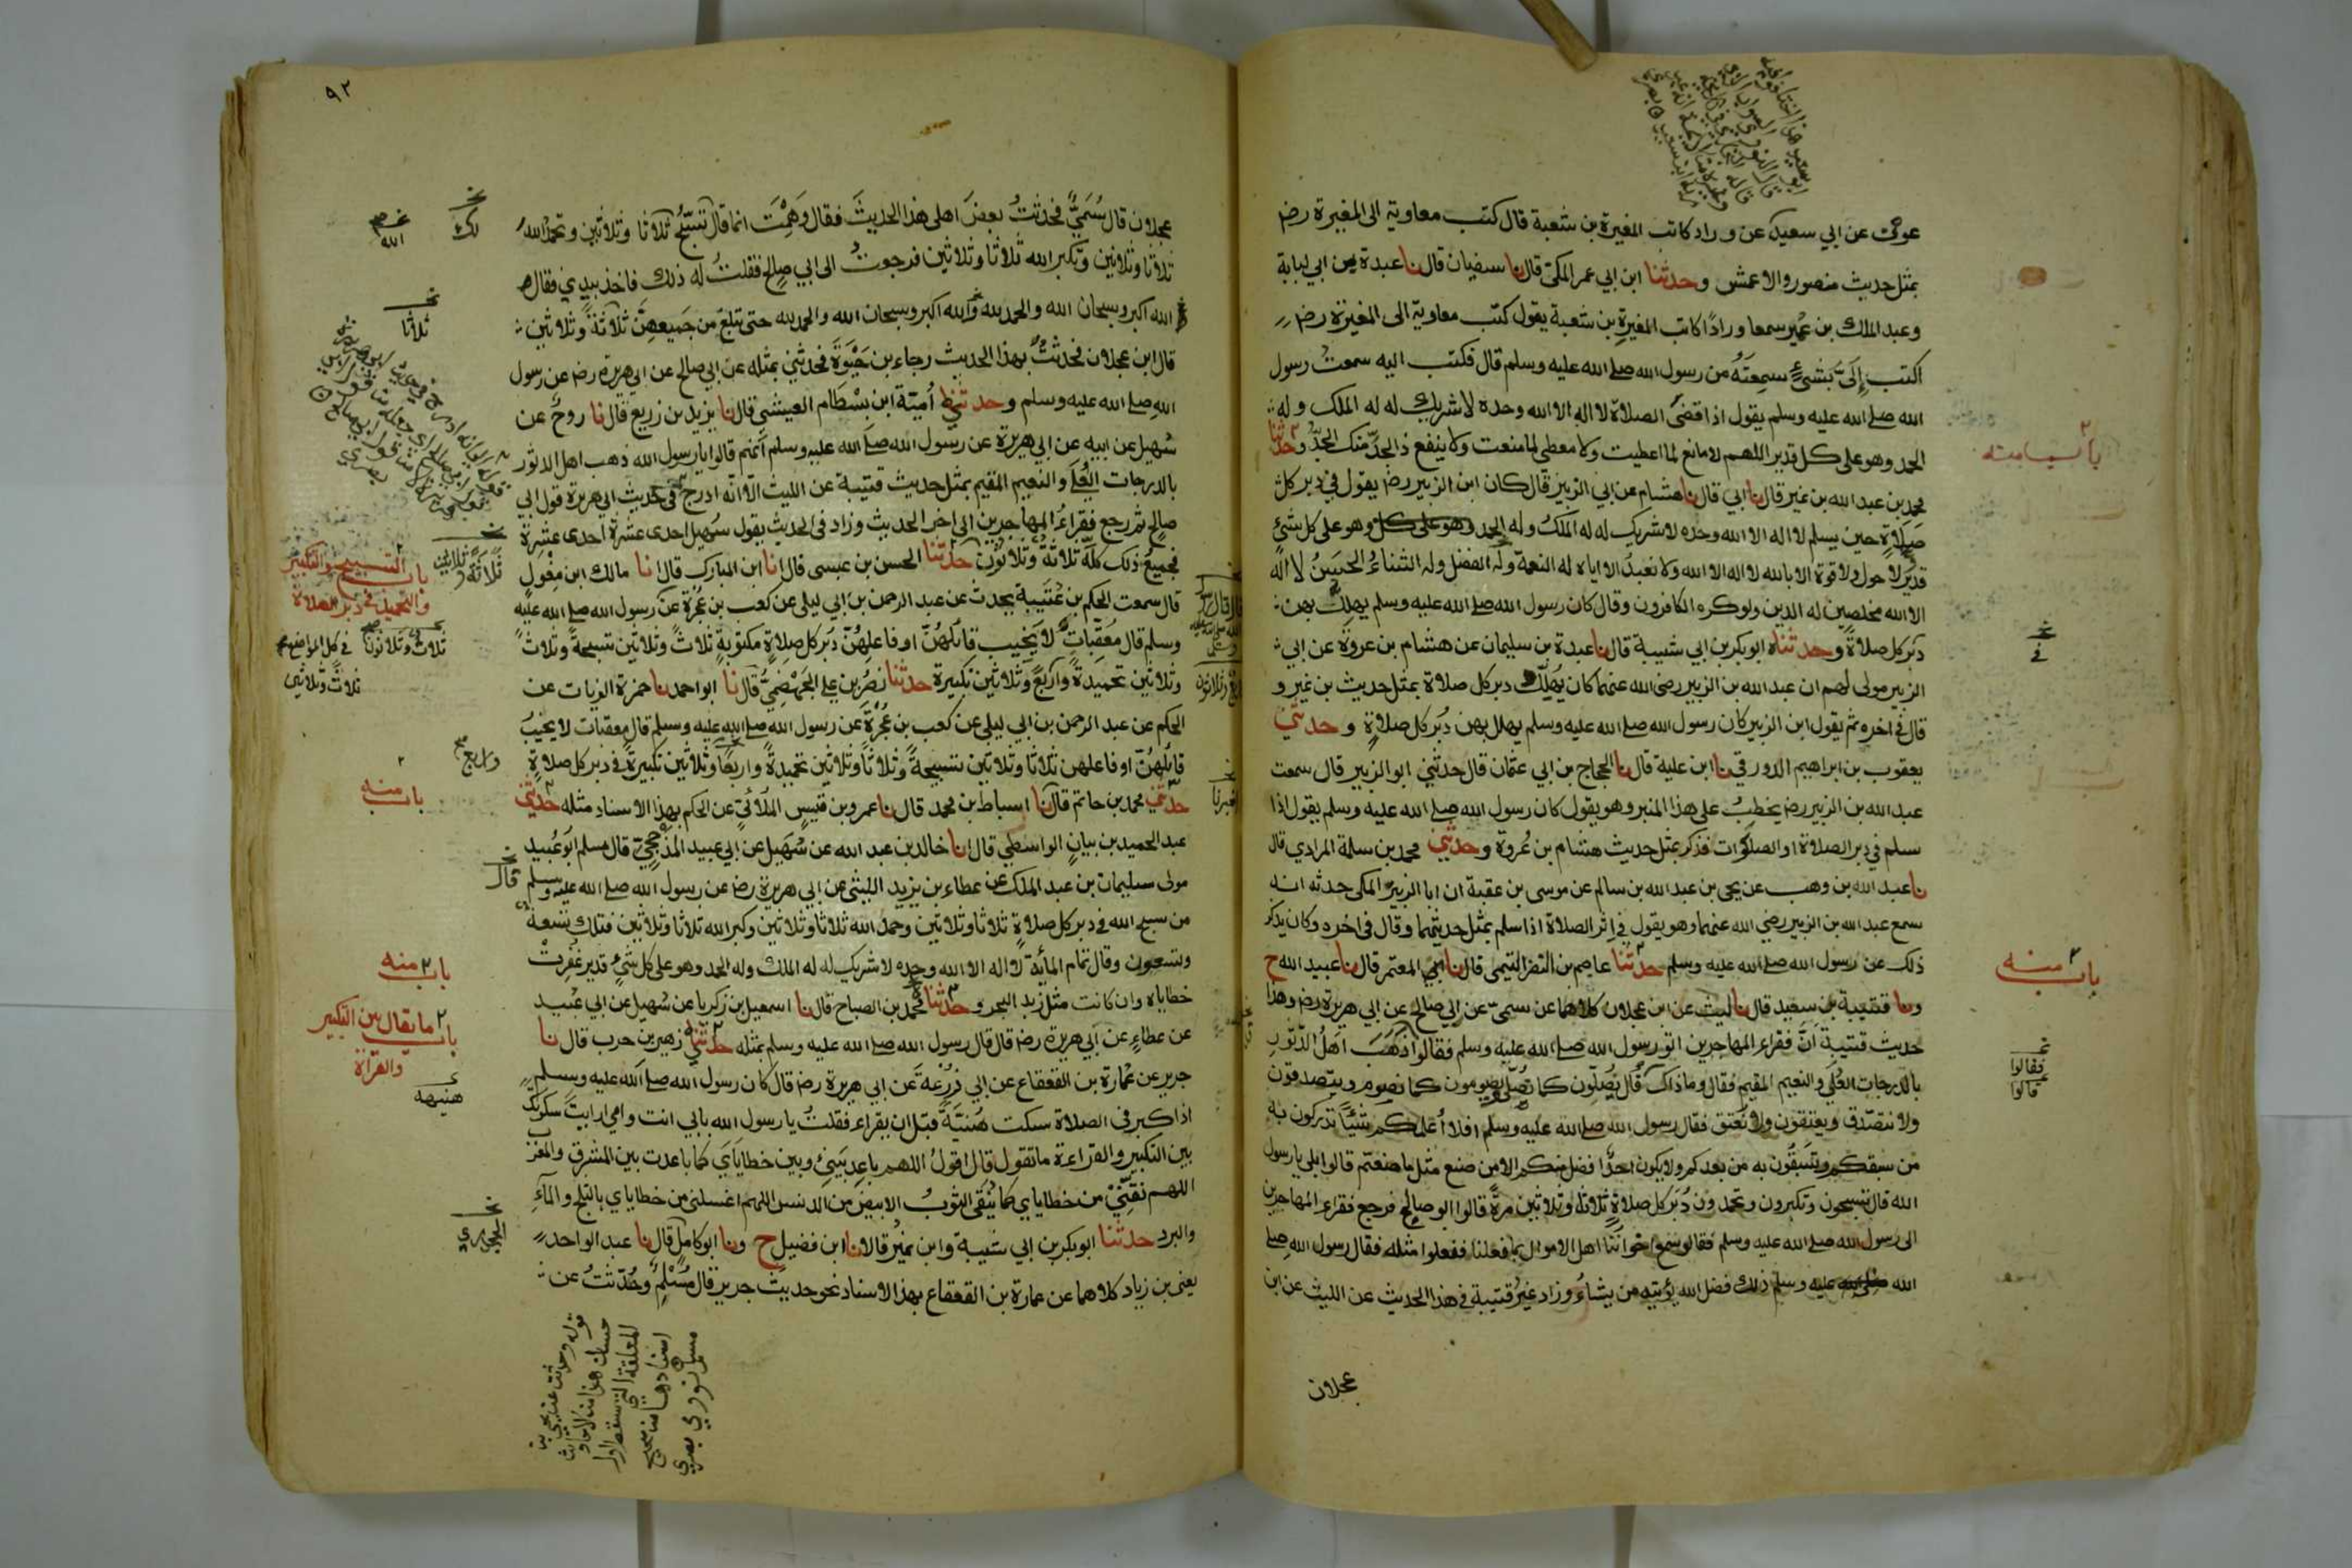 عون عن ابي سعيد عن وراد كاتب المغيرة بن شعبة قال كتب معاوية الى المغيرة رضـ
بمثل حديث منصور والاعمش وحدثنا ابن ابي عمر المكي قال نا سفيان قال نا عبدة بن ابي لبابة
وعبد الملك بن عمير سمعا ورادًا كاتب المغيرة بن شعبة يقول كتب معاوية الى المغيرة رضـ
اكتب إِلَيَّ بشيءٍ سمِعتَهُ من رسول الله صلى الله عليه وسلم قال فكتب اليه سمعتُ رسول
الله صلى الله عليه وسلم يقول اذا قضى الصلاة لا اله الا الله وحده لا شريك له له الملك وله
الحمد وهو على كل قدير اللهم لا مانع لما اعطيت ولا معطي لما منعت ولا ينفع ذا الجدّ منك الجدُّ وحدثنا
محمد بن عبد الله بن نمير قال نا ابي قال نا هشام عن ابي الزبير قال كان ابن الزبير رضـ يقول في دبر كل
صلاةٍ حين يسلم لا اله الا الله وحده لا شريك له له الملكُ وله الحمد وهو على كل وهو على كل شيءٍ
قديرٌ لا حول ولا قوة الا بالله لا اله الا الله ولا نعبدُ الا اياه له النعمة وله الفضل وله الثناءُ الحَسَنُ لا اله
الا الله مخلصين له الدين ولو كره الكافرون وقال كان رسول الله صلى الله عليه وسلم يهلل بهن
دُبَر كل صلاةٍ وحدثناه ابو بكر بن ابي شيبة قال نا عبدة بن سليمان عن هشام بن عروة عن ابي
الزبير مولى لهم ان عبد الله بن الزبير رضى الله عنهما كان يُهلِّل دبر كل صلاة بمثل حديث بن نمير و
قال في اخره ثم يقول ابن الزبير كان رسول الله صلى الله عليه وسلم يهلل بهن دُبَر كل صلاةٍ وحدثني
يعقوب بن ابراهيم الدورقي نا ابن علية قال نا الحجاج بن ابي عثمان قال حدثني ابو الزبير قال سمعت
عبد الله بن الزبير رضـ يخطبُ على هذا المنبر وهو يقول كان رسول الله صلى الله عليه وسلم يقول اذا
سلم في دبر الصلاة او الصلوات فذكر بمثل حديث هشام بن عُروة وحدثني محمد بن سلمة المرادي قال
نا عبد الله بن وهب عن يحيى بن عبد الله بن سالم عن موسى بن عقبة ان ابا الزبير المكي حدثه انه
سمع عبد الله بن الزبير رضي الله عنهما وهو يقول في اِثر الصلاة اذا سلم بمثل حديثهما وقال في اخره وكان يذكر
ذلك عن رسول الله صلى الله عليه وسلم حدثنا عاصم بن النضر التيمي قال نا المعتمر قال نا عبيد الله ح
ونا قتيبة بن سعيد قال نا ليث عن ابن عجلان كلاهما عن سمىّ عن ابي صالح عن ابي هريرة رضـ وهذا
حديث قتيبة اَنَّ فقراء المهاجرين اتو رسول الله صلى الله عليه وسلم فقالوا ذهَبَ اهلُ الدّثورِ
بالدرجات العُلَى والنعيم المقيم فقال وما ذاك قال يُصلّون كما نُصلّي ويصومون كما نصوم ويتصدقون
ولا نتصّدق ويعتقون ولا نُعتق فقال رسول الله صلى الله عليه وسلم افلا اُعلمكم شيئًا تدركون به
من سبقكم وتَسبقُون به من بعدكم ولا يكون احدٌ افضل منكم الا من صنع مثل ما صنعتم قالوا بلى يا رسول
الله قال تسبحون وتكبرون وتحمدون دُبَر كل صلاةٍ ثلاثًا وثلاثين مرةً قال ابو صالحٍ فرجع فقراء المهاجرين
الى رسول الله صلى الله عليه وسلم فقالو سمع اخوانُنا اهل الاموال بما فعلنا ففعلوا مثله فقال رسول الله صلى
الله عليه وسلم ذلك فضل الله يؤتيه من يشاءُ وزاد غيرُ قتيبة في هذا الحديث عن الليث عن ابن
عجلان
باب منه
نخـ
في
باب منه
نخـ
فقالوا
قالوا
٩٢
عجلان قال سُمَيٌّ فحدثتُ بعضَ اهلى هذا الحديثَ فقال وَهِمْتَ انما قال تُسَبِّحُ ثلاثًا وثلاثين وتحمدُ اللهَ
ثلاثًا وثلاثين وتكبر الله ثلاثا وثلاثين فرجعتُ الى ابي صالحٍ فقلتُ له ذلك فاخذ بيدي فقال
الله اكبر وسبحان الله والحمد لله والله اكبر وسبحان الله والحمد لله حتى تبلغ من جميعهِنَّ ثلاثةً وثلاثين
قال ابن عجلان فحدثتُ بهذا الحديث رجاء بن حَيْوَةَ فحدثني بمثله عن ابي صالح عن ابي هريرة رضـ عن رسول
اللهِ صلى الله عليه وسلم وحدثني أمية ابن بِسْطام العيشي قال نا يزيد بن زريع قال نا روحٌ عن
سُهيل عن ابيه عن ابي هريرة عن رسول الله صلى الله عليه وسلم أنهم قالوا يا رسول الله ذهب اهل الدثور
بالدرجات العُلَى والنعيم المقيم بمثل حديث قتيبة عن الليث الا انّه ادرج في حديث ابي هريرة قول ابي
صالحٍ ثم رجع فقراءُ المهاجرين الى اخر الحديث وزاد في الحديث يقول سُهيل احدى عشرة احدى عشرة
فجميعُ ذلك كلّه ثلاثةٌ وثلاثون حدثنا الحسن بن عيسى قال انا ابن المبارك قال انا مالك ابن مِغولٍ
قال سمعت الحكم بن عُتيبة يحدث عن عبد الرحمن بن ابي ليلى عن كعب بن عُجرة عن رسول الله صلى الله عليه
وسلم قال مُعقِّباتٌ لا يَخيب قائلهُنّ او فاعلهُنّ دُبَر كل صلاةٍ مكتوبةٍ ثلاثً وثلاثين تسبيحةً وثلاثً
وثلاثين تحميدةً واربعً وثلاثين تكبيرة حدثنا نصر بن علي الجهضميُّ قال نا ابو احمد نا حمزة الزيات عن
الحكم عن عبد الرحمن بن ابي ليلى عن كعب بن عُجْرةَ عن رسول الله صلى الله عليه وسلم قال معقبات لا يخيبُ
قائلهُنّ او فاعلهن ثلاثا وثلاثين تسبيحةً وثلاثًا وثلاثين تحميدةً واربعًا وثلاثين تكبيرةً في دبر كل صلاةٍ
حدثني محمد بن حاتم قال نا اسباط بن محمد قال نا عمرو بن قيسٍ المُلائيّ عن الحكم بهذا الاسناد مثله حدثني
عبد الحميد بن بيانٍ الواسطي قال انا خالد بن عبد الله عن سُهيل عن ابي عبيد المَذْحِجيّ قال مسلم ابو عُبيد
مولى سليمان بن عبد الملك عن عطاء بن يزيد الليثى عن ابي هريرة رضـ عن رسول الله صلى الله عليه وسلم قال
من سبح الله في دبر كل صلاةٍ ثلاثا وثلاثين وحمد الله ثلاثا وثلاثين وكبر الله ثلاثا وثلاثين فتلك تسعة
وتسعون وقال تمام المائة لا اله الا الله وحده لا شريك له له الملك وله الحمد وهو على كل شيءٍ قدير غُفِرتْ
خطاياه وان كانت مثل زبد البحر وحدثنا محمد بن الصباح قال نا اسمعيل بن زكريا عن سُهيل عن ابي عُبيد
عن عطاءٍ عن ابي هريرة رضـ قال قال رسول الله صلى الله عليه وسلم بمثله حدثني زهير بن حرب قال نا
جرير عن عُمارة بن القعقاع عن ابي زُرعة عن ابي هريرة رضـ قال كان رسول الله صلى الله عليه وسلم
اذا كبر في الصلاة سكت هُنَيَّةً قبل ان يقراء فقلتُ يا رسول الله بابي انت وامي ارايتَ سكوتك
بين التكبير والقراءة ما تقول قال اقولُ اللهم باعد بَيني وبين خطايايَ كما باعدت بين المشرق والمغرب
اللهم نَقِّني من خطاياي كما يُنَقى الثوبُ الابيض من الدنس اللهم اغسلني من خطاياي بالثلج والماءِ
والبرد حدثنا ابو بكر بن ابي شيبة وابن نميرٌ قالا نا ابن فضيل ح ونا ابو كامل قال نا عبد الواحد
يعني بن زياد كلاهما عن عمارة بن القعقاع بهذا الاسناد نحو حديث جرير قال مُسْلم وحُدّثتُ عن
نخـ
الله
نخـ
ثلاثا
باب التسبيح والتكبير
والتحميد في دبر الصلاة
ثلاثٌ وثلاثون
ثلاث وثلاثين
واربع
باب منه
باب منه
باب ما يقال بين التكبير
والقراة
هنيهة
نخـ
الجحدري
قوله وحدثت عن يحيى بن
حسان هذا من الاحاديث
المعلقة التي سقط اول
اسنادها من صحيح
مسلم نووي بصري